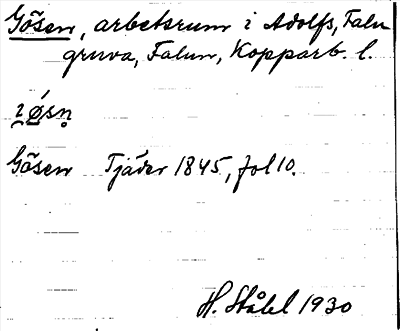 Gösen, arbetsrum i Adolfs, Falu
gruva, Falun, Kopparb. l.
Gösen Tjäder 1845, fol 10.
H. Ståhl 1930